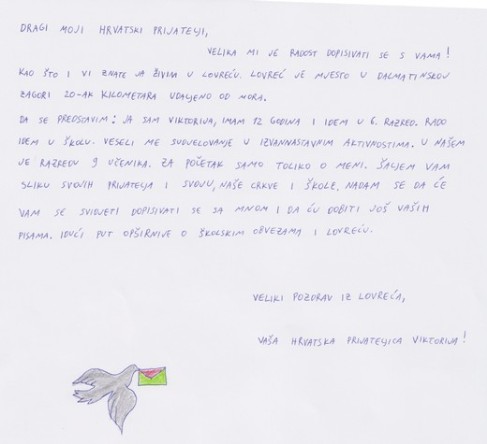 DRAGI MOJI HRVATSKI PRIJATELJI,
VELIKA MI JE RADOST DOPISIVATI SE S VAMA!
KAO ŠTO I VI ZNATE JA ŽIVIM U LOVREĆU. LOVREĆ JE MJESTO U DALMATINSKOJ
ZAGORI 20-AK KILOMETARA UDALJENO OD MORA.
DA SE PREDSTAVIM: JA SAM VIKTORIJA, IMAM 12 GODINA I IDEM U 6. RAZRED. RADO
IDEM U ŠKOLU. VESELI ME SUDJELOVANJE U IZVANNASTAVNIM AKTIVNOSTIMA. U NAŠEM
JE RAZREDU 9 UČENIKA. ZA POČETAK SAMO TOLIKO O MENI. ŠALJEM VAM
SLIKU SVOJIH PRIJATELJA I SVOJU, NAŠE CRKVE I ŠKOLE. NADAM SE DA ĆE
VAM SE SVIDJETI DOPISIVATI SE SA MNOM I DA ĆU DOBITI JOŠ VAŠIH
PISAMA. IDUĆI PUT OPŠIRNIJE O ŠKOLSKIM OBVEZAMA I LOVREĆU.
VELIKI POZDRAV IZ LOVREĆA,
VAŠA HRVATSKA PRIJATELJICA VIKTORIJA!